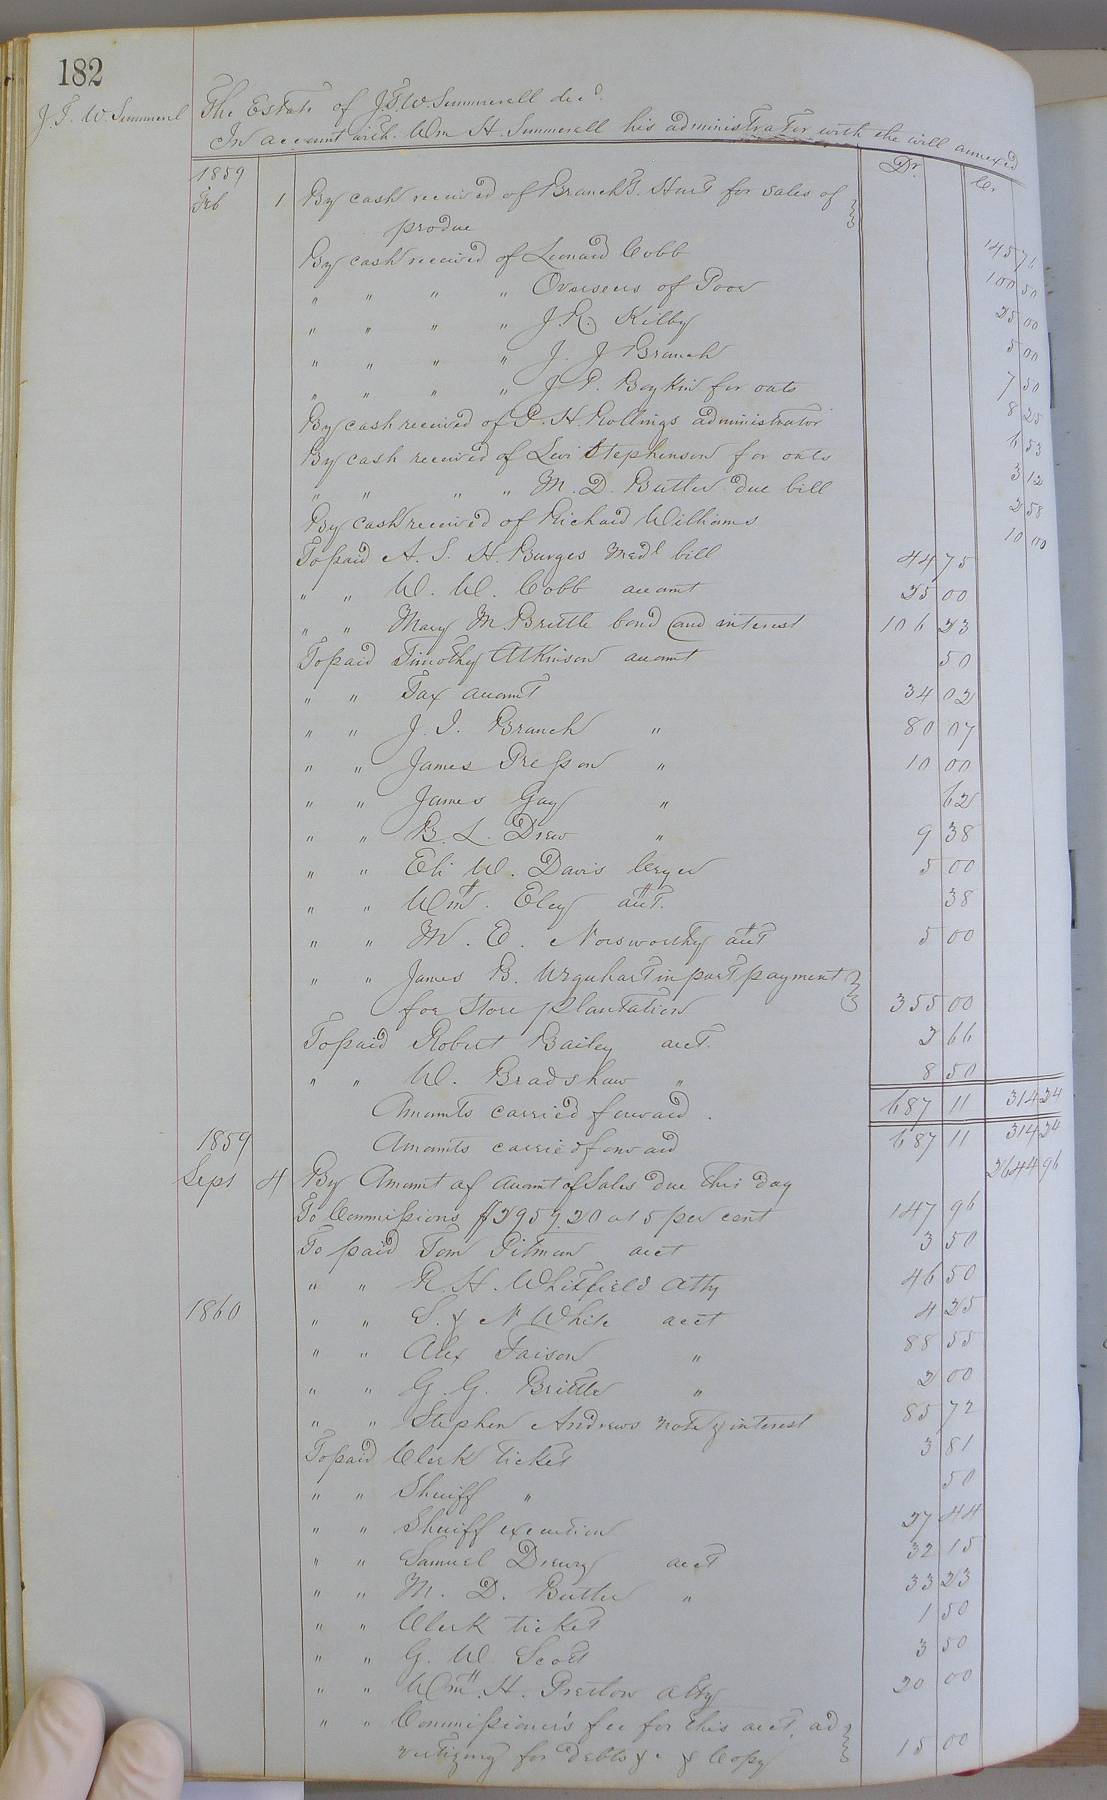 182
J. T. W. Summerell
The Estate of J.T.W. Summerell decd.
In account with Wm H. Summerell his administrator with the will annexed
Dr. Cr.
1859
Feb 1 By cash received of Branch & Hart for sales of
produce 145 76
By cash received of Leonard Cobb 100 50
" " " " Overseers of Poor 25 00
" " " " J. R. Kilby 5 00
" " " " J. J Branch 7 50
" " " " J P. Boykin for oats 8 25
By cash received of P. H. Rollings administrator 6 53
By cash received of Levi Stephenson for oats 3 12
" " " " M. D. Butler due bill 2 58
By cash received of Richard Williams 10 00
To paid A. S. H. Burges Medl bill 44 75
" " W. W. Cobb account 25 00
" " Mary M. Brittle bond and interest 106 23
To paid Timothy Atkinson account 50
" " Tax account 34 02
" " J. J. Branch " 80 07
" " James Presson " 10 00
" " James Gay " 62
" " B. L. Drew " 9 38
" " Eli W. Davis Cryer 5 00
" " Wm. Eley acct. 38
" " W. E. Norsworthy acct 5 00
" " James B. Urquhart in part payment
for Store plantation 355 00
To paid Robert Bailey acct. 2 66
" " W. Bradshaw " 8 50
Amounts carried forward. 687 11 314 24
1859 Amounts carried forward 687 11 314 24
Sept 4 By Amount of account of Sales due this day 2644 96
To Commissions $2959.20 at 5 per cent 147 96
To paid Tom Pitman acct 3 50
" " R. H. Whitfield Atty 46 50
1860 " " S. & N White acct 4 25
" " Alex Faison " 88 55
" " G. G. Brittle " 2 00
" " Stephen Andrews note & interest 85 72
To paid Clerk ticket 3 81
" " Sheriff " 50
" " Sheriff execution 27 44
" " Samuel Drewry acct 32 15
" " M. D. Butler " 33 23
" " Clerk ticket 1 50
" " G. W. Scott 3 50
" " Wm. H. Preston atty 20 00
" " Commissioner's fee for this acct. ad
vertizing for debts & c & Copy 15 00